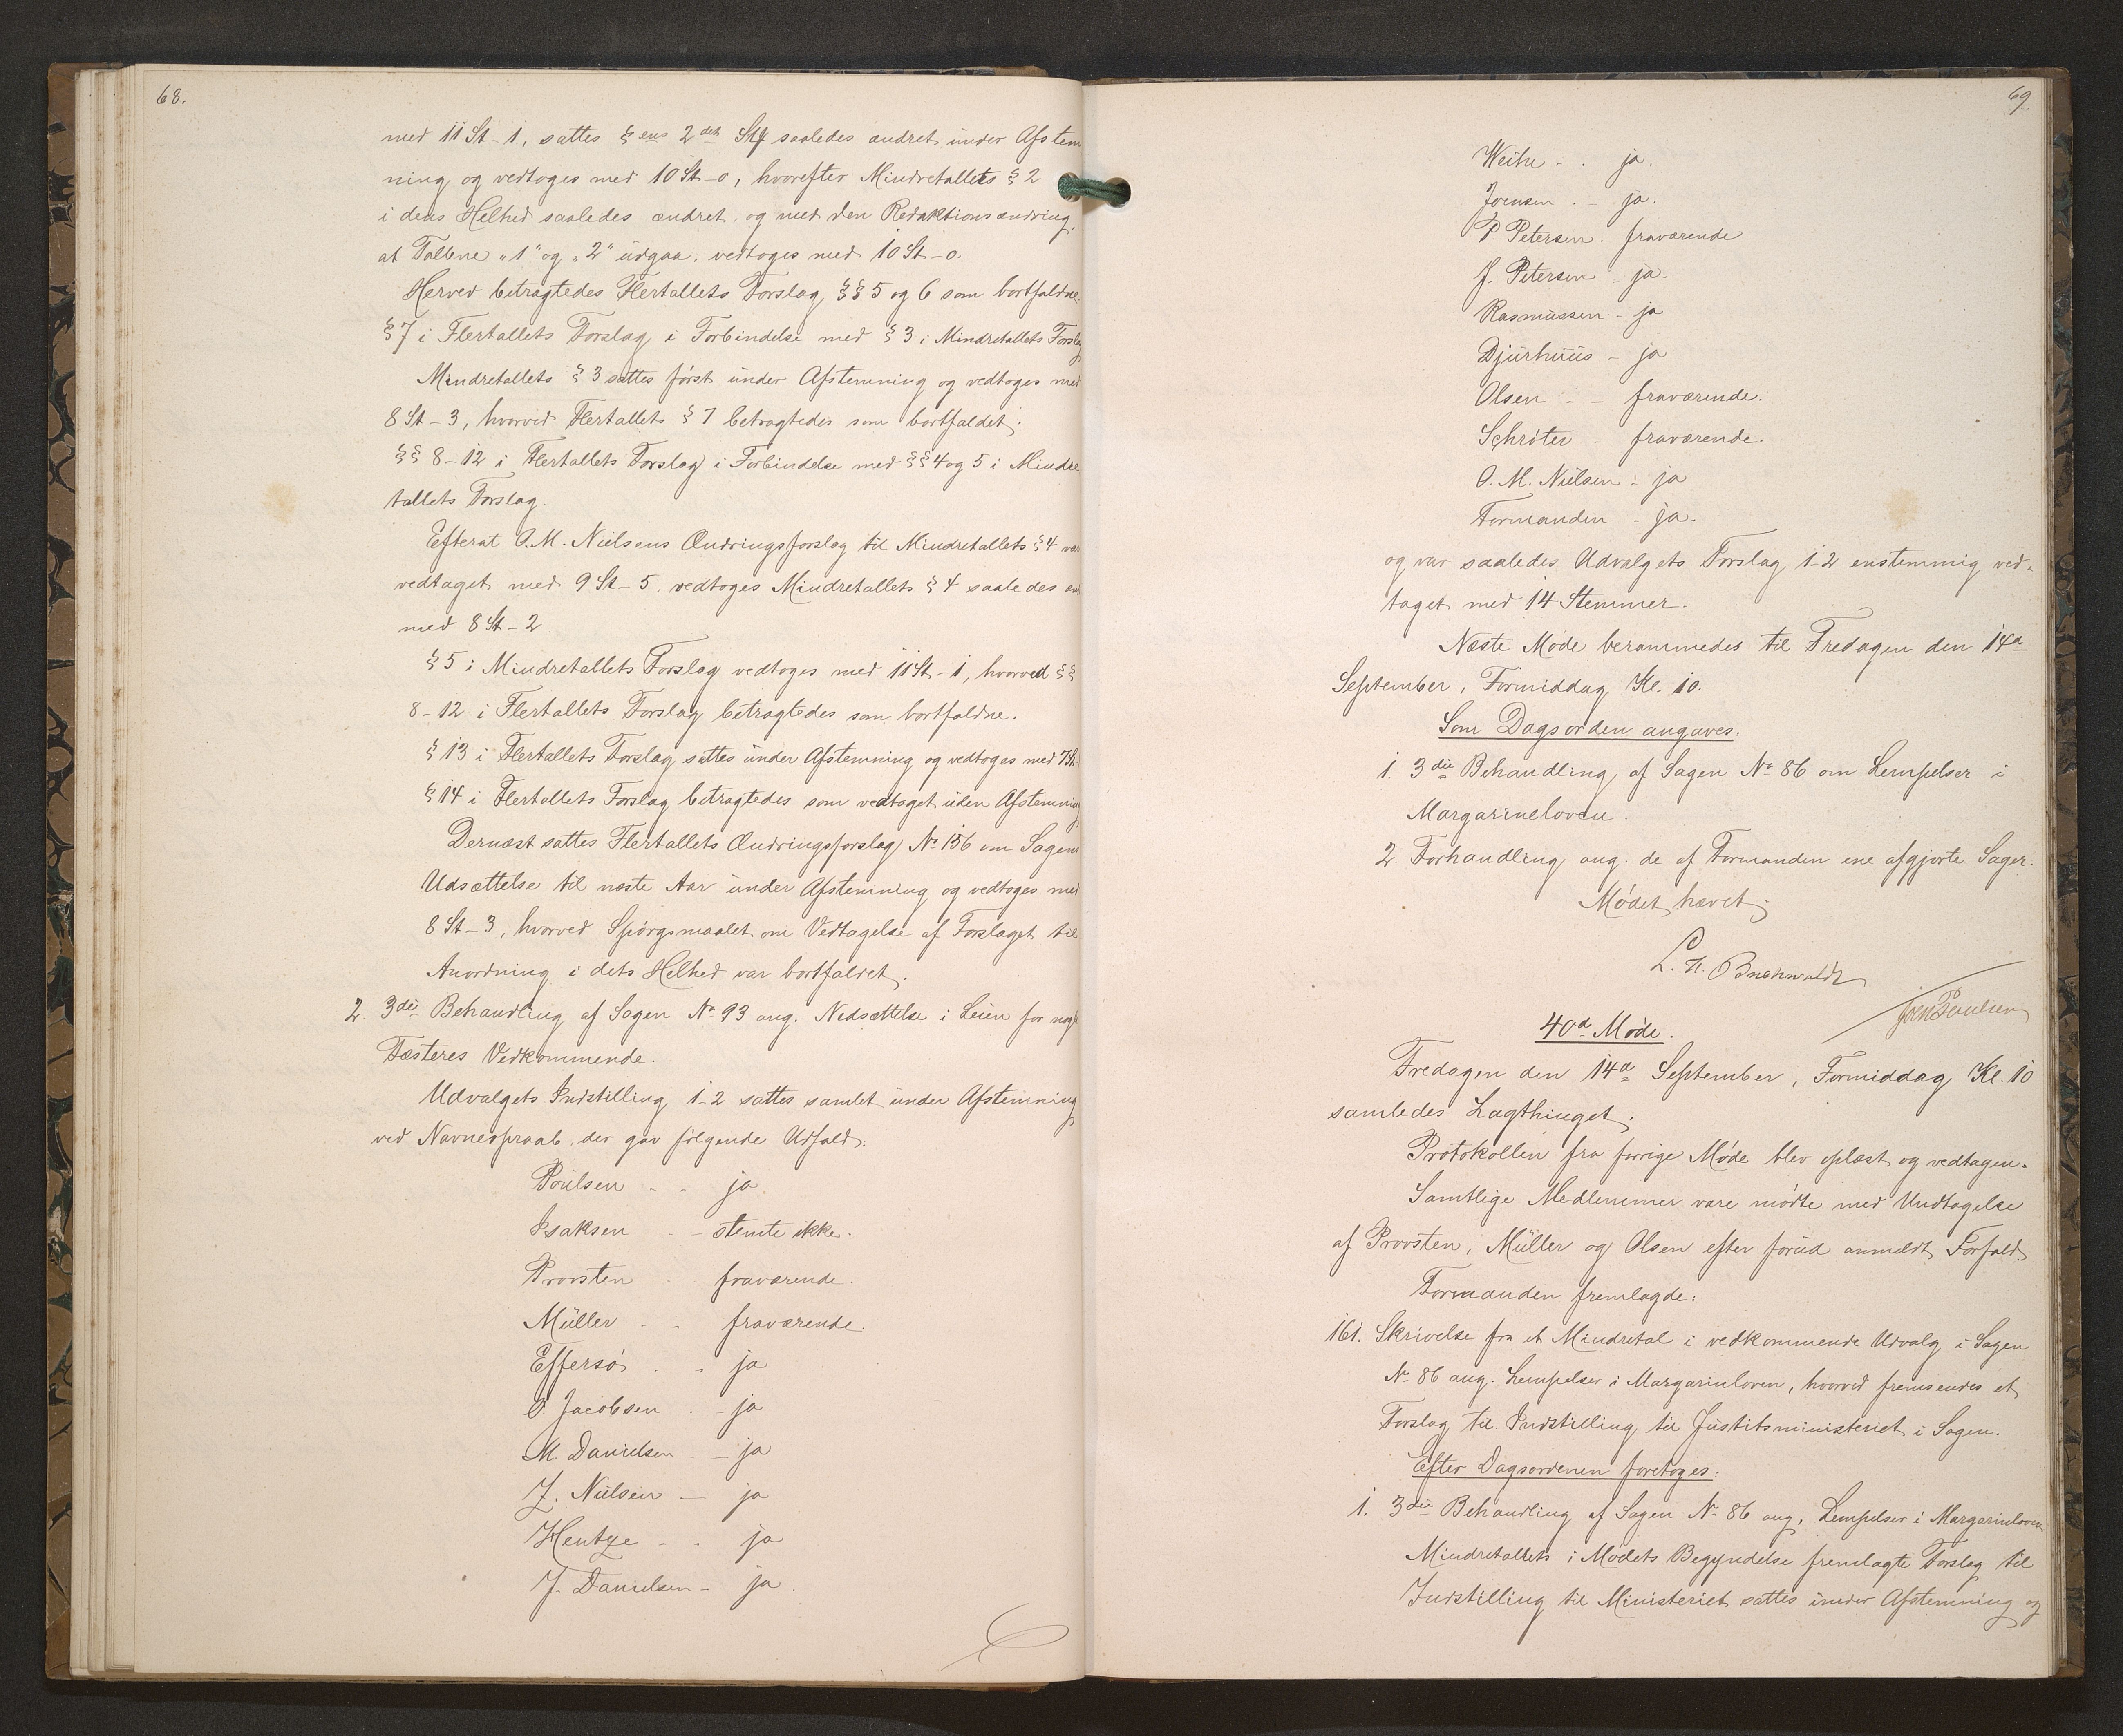 68.
med 11 St - 1, sattes § ens 2det Stk saaledes ændret under Afstem
ning og vedtoges med 10 St - 0, hvorefter Mindretallets § 2
i dens Helhed saaledes ændret og med den Redaktionsændring,
at Tallene "1" og "2" udgaa, vedtoges med 10 St - 0.
Herved betragtedes Flertallets Forslag §§ 5 og 6 som bortfaldne.
§ 7 i Flertallets Forslag i Forbindelse med § 3 i Mindretallets Forslag
Mindretallets § 3 sattes først under Afstemning og vedtoges med
8 St - 3, hvorved Flertallets § 7 betragtedes som bortfaldet.
§§ 8-12 i Flertallets Forslag i Forbindelse med §§ 4 og 5 i Mindre
tallets Forslag.
Efterat O. M. Nielsens Ændringsforslag til Mindretallets § 4 var
vedtaget med 9 St - 5, vedtoges Mindretallets § 4 saaledes
med 8 St - 2
§ 5 i Mindretallets Forslag vedtoges med 11 St - 1, hvorved §§
8-12 i Flertallets Forslag betragtedes som bortfaldne.
§ 13 i Flertallets Forslag sattes under Afstemning og vedtoges med 7 St.
§ 14 i Flertallets Forslag betragtedes som vedtaget uden Afstemning
Dernæst sattes Flertallets Ændringsforslag No 156 om Sagens
Udsættelse til næste Aar under Afstemning og vedtoges med
8 St - 3, hvorved Spörgsmaalet om Vedtagelse af Forslaget til
Anordning i dets Helhed var bortfaldet.
2. 3die Behandling af Sagen No 93 ang. Nedsættelse i Leien for nogle
Fæsteres Vedkommende.
Udvalgets Indstilling 1-2 sattes samlet under Afstemning
ved Navneopraab, der gav fölgende Udfald:
Poulsen - - ja
Isaksen - - stemte ikke.
Provsten - fraværende.
Müller - - fraværende.
Effersö . - ja
O Jacobsen . - ja
M. Danielsen . - ja
J. Nielsen - ja
Hentze - . ja
J. Danielsen - ja.
69.
Weihe - . ja.
Joensen . - ja.
P. Petersen . fraværende
J. Petersen - ja.
Rasmussen - ja
Djurhuus - ja
Olsen - - fraværende.
Schröter - fraværende.
O. M. Nielsen - ja
Formanden - ja.
og var saaledes Udvalgets Forslag 1-2 enstemmig ved-
taget med 14 Stemmer.
Næste Møde berammedes til Fredagen den 14d
September, Formiddag Kl. 10.
Som Dagsorden angaves.
1. 3die Behandling af Sagen No 86 om Lempelser i
Margarineloven.
2. Forhandling ang. de af Formanden ene afgjorte Sager.
Mödet hævet.
L. H. Buchwaldt
Joen Poulsen
40d Møde.
Fredagen den 14d September, Formiddag Kl. 10
samledes Lagthinget.
Protokollen fra forrige Møde blev oplæst og vedtagen.
Samtlige Medlemmer vare mödte med Undtagelse
af Provsten, Müller og Olsen efter forud anmeldt Forfald.
Formanden fremlagde:
161. Skrivelse fra et Mindretal i vedkommende Udvalg i Sagen
No 86 ang. Lempelser i Margarinloven, hvorved fremsendes et
Forslag til Indstilling til Justitsministeriet i Sagen.
Efter Dagsordenen foretoges:
1. 3die Behandling af Sagen No 86 ang. Lempelser i Margarinloven
Mindretallets i Mødets Begyndelse fremlagte Forslag til
Indstilling til Ministeriet sattes under Afstemning og